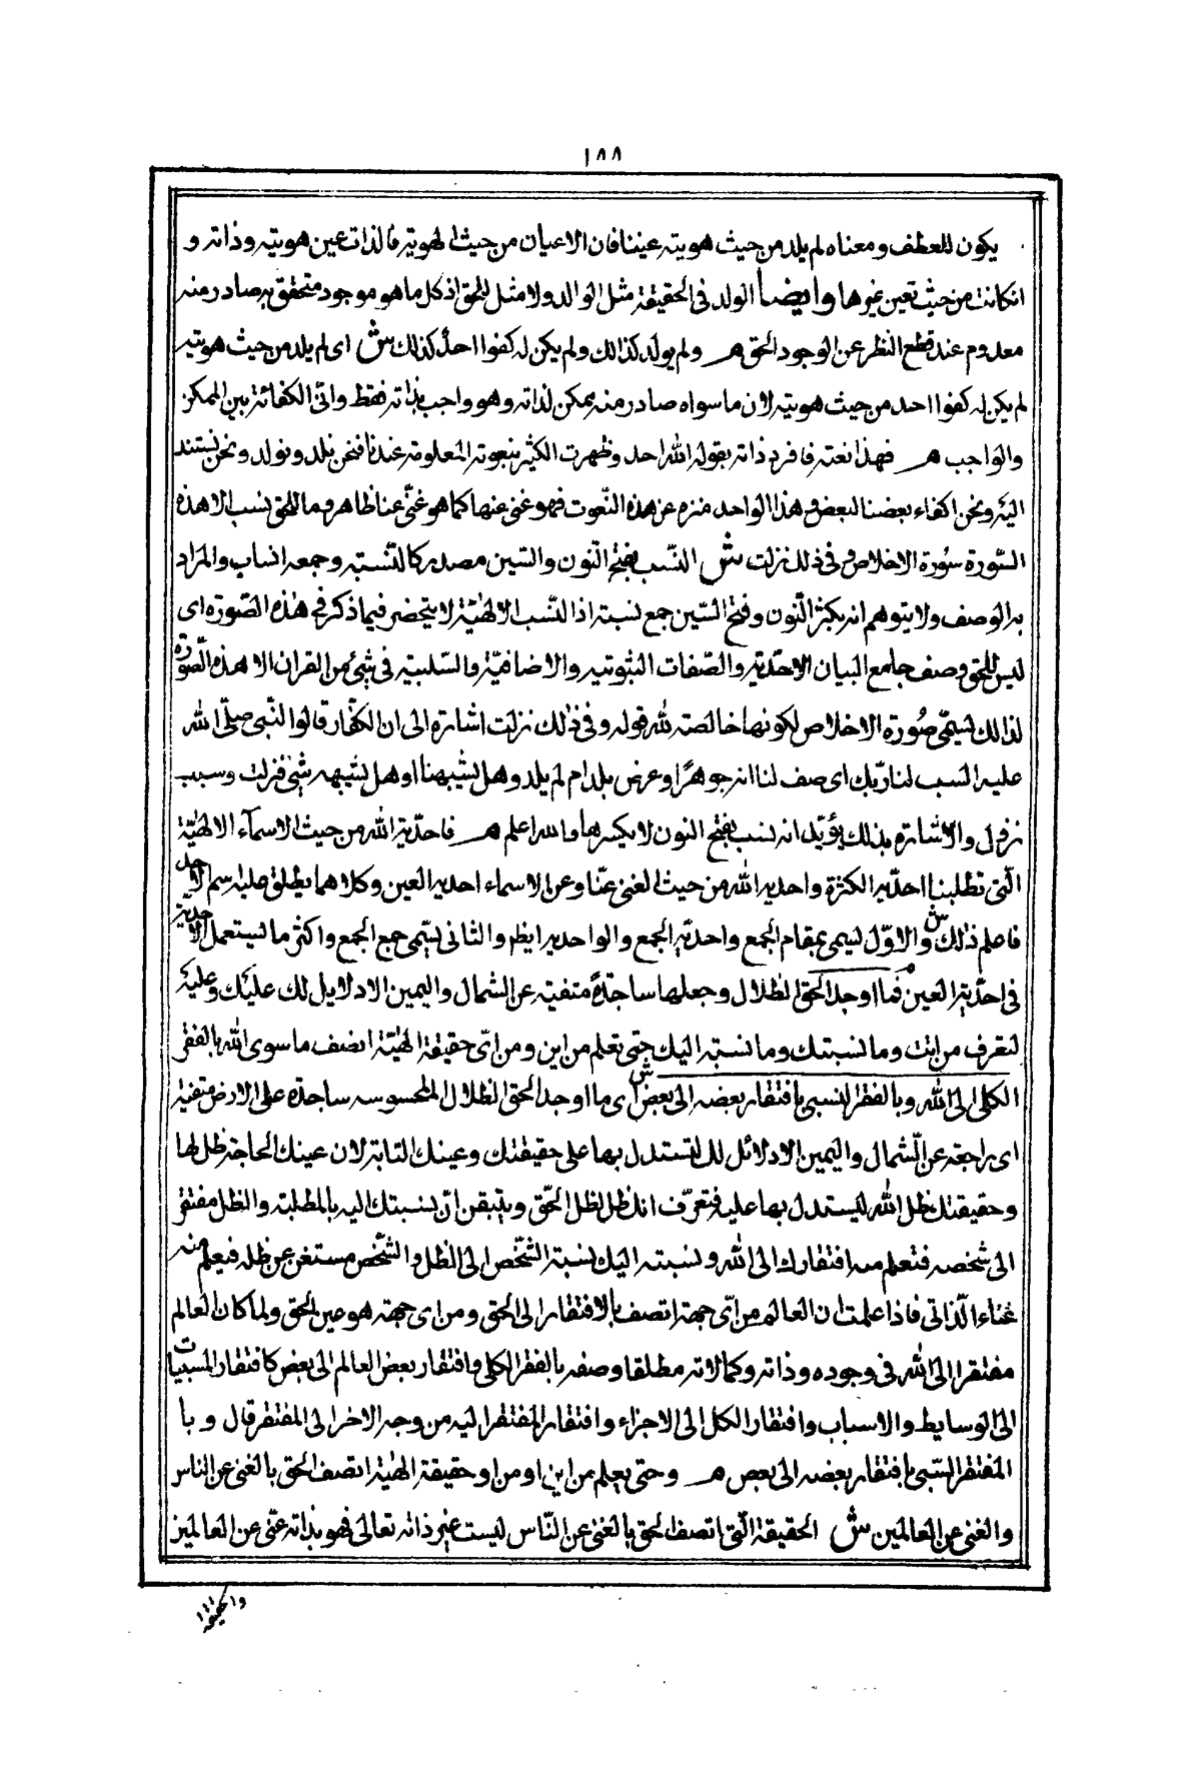 ١٨٨
يكون للعطف ومعناه لم يلد من حيث هويته عيننا فان الاعيان من حيث الهوية فالذات عين هويته وذاته و
انكانت من حيث تعين غيرها وايضا الولد فى الحقيقة مثل الوالد ولا مثل للحق اذ كل ما هو موجود متحقق به صادر منه
معدوم عند قطع النظر عن الوجود الحق م ولم يولد كذالك ولم يكن له كفوا احد كذلك ش اى لم يلد من حيث هويته
لم يكن له كفوا احد من حيث هويته لان ما سواه صادر منه ممكن لذاته وهو واجب بذاته فقط وانى الكفائة بين الممكن
والواجب م فهذا نعته فافرد ذاته بقوله الله احد وظهرت الكثرة بنعوته المعلومة عندنا فنحن نلد ونولد ونحن نستند
اليه ونحن اكفاء بعضنا لبعض وهذا الواحد منزه عن هذه النعوت فهو غنى عنها كما هو غنى عنا ظاهر وما للحق نسب الا هذه
السورة سورة الاخلاص وفى ذلك نزلت ش النسب بفتح النون والسين مصدر كالنسبة وجمعه انساب والمراد
به الوصف ولا يتوهم انه بكسر النون وفتح السين جمع نسبة اذ النسب الالهية لا ينحصر فيما ذكر فى هذه الصورة اى
ليس للحق وصف جامع البيان الاحدية والصفات الثبوتية والاضافية والسلبية فى شئ من القران الا هذه الصورة
لذالك تسمى صورة الاخلاص لكونها خالصة لله قوله وفى ذلك نزلت اشارة الى ان الكفار قالوا النبى صلى الله
عليه انسب لنا ربك اى صف لنا انه جوهر او عرض يلد ام لم يلد وهل يشبهنا او هل يشبهه شئ فنزلت وسبب
نزول والاشارة بذلك يؤيد انه نسب بفتح النون لا بكسرها والله اعلم م فاحدية الله من حيث الاسمآء الالهية
التى تطلبنا احدية الكثرة واحدية الله من حيث الغنى عنا وعن الاسماء احدية العين وكلاهما يطلق عليه اسم الاحد
فاعلم ذلك ش والاول يسمى بمقام الجمع واحدية الجمع والواحدية ايظا والثانى يسمى جمع الجمع واكثر ما يستعمل الاحدية
فى احدية العين م فما اوجد الحق الظلال وجعلها ساجدة متفيئة عن الشمال واليمين الا دلايل لك عليك وعليه
لتعرف من انت وما نسبتك وما نسبته اليك حتى تعلم من اين ومن اى حقيقة الهية اتصف ما سوى الله بالفقر
الكلى الى الله وبالفقر النسبى بافتقار بعضه الى بعض ش اى ما اوجد الحق الظلال المحسوسه ساجدة على الارض متفيئة
اى راجعة عن الشمال واليمين الا دلائل لك لتستدل بها على حقيقتك وعينك الثابتة لان عينك الخارجة ظل لها
وحقيقتك ظل الله ليستدل بها عليه فتعرف انك ظل لظل الحق ويتيقن ان نسبتك اليه بالظلية والظل مفتقر
الى شخصه فتعلم منه افتقارك الى الله ونسبته اليك نسبة الشخص الى الظل والشخص مستغن عن ظله فيعلم منه
غناءه الذاتى فاذا علمت ان العالم من اى جهة اتصف بالافتقار الى الحق ومن اى جهة هو عين الحق ولما كان العالم
مفتقرا الى الله فى وجوده وذاته وكمالاته مطلقا وصفه بالفقر الكلى وافتقار بعض العالم الى بعض كافتقار المسببات
الى الوسايط والاسباب وافتقار الكل الى الاجزاء وافتقار المفتقر اليه من وجه الاخر الى المفتقر قال و با
المفتقر النسبى بافتقار بعضه الى بعض م وحتى يعلم من اين او من او حقيقة الهية اتصف الحق بالغنى عن الناس
والغنى عن العالمين ش الحقيقة التى اتصف الحق بالغنى عن الناس ليست غير ذاته تعالى فهو بذاته غنى عن العالمين
والحقيقة